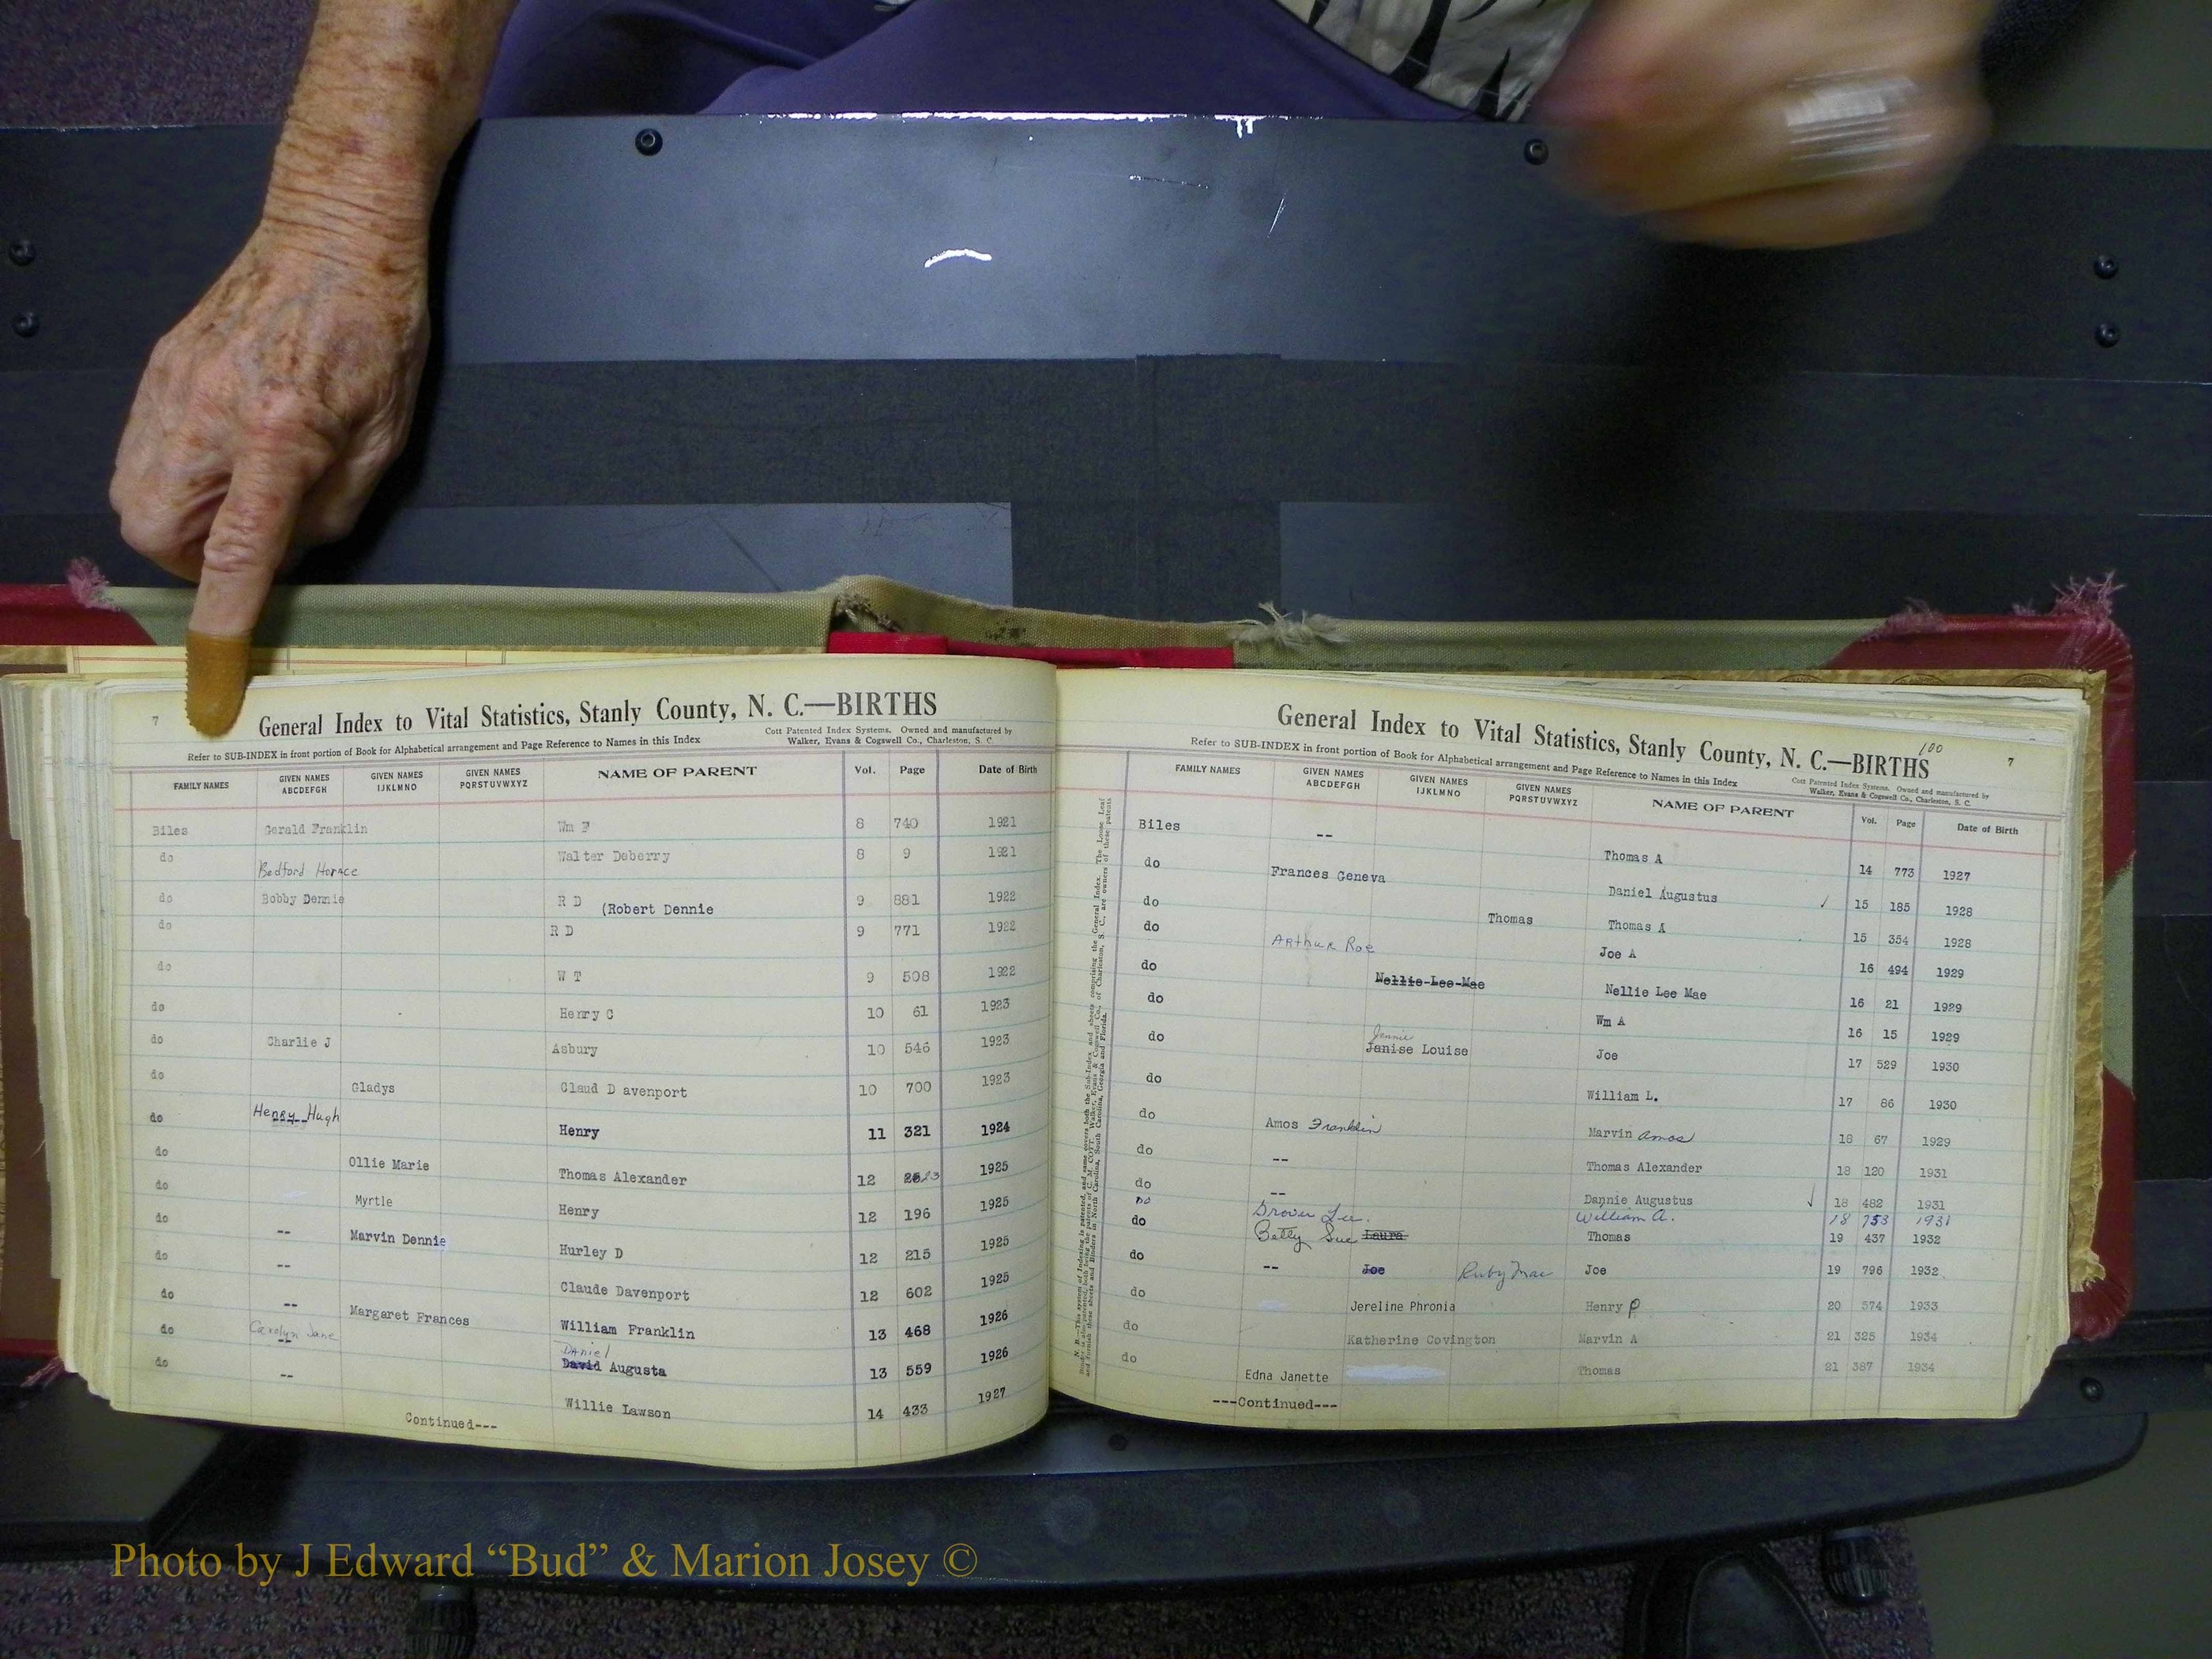 7
General Index to Vital Statistics, Stanly County, N. C.—BIRTHS
Refer to SUB-INDEX in front portion of Book for Alphabetical arrangement and Page Reference to Names in this Index
Cott Patented Index Systems. Owned and manufactured by
Walker, Evans & Cogswell Co., Charleston, S. C.
FAMILY NAMES GIVEN NAMES ABCDEFGH GIVEN NAMES IJKLMNO GIVEN NAMES PQRSTUVWXYZ NAME OF PARENT Vol. Page Date of Birth
Biles Gerald Franklin Wm F 8 740 1921
do Bedford Horace Walter Deberry 8 9 1921
do Bobby Dennie R D (Robert Dennie 9 881 1922
do R D 9 771 1922
do W T 9 508 1922
do Henry C 10 61 1923
do Charlie J Asbury 10 546 1923
do Gladys Claud D avenport 10 700 1923
do Henry Hugh Henry 11 321 1924
do Ollie Marie Thomas Alexander 12 1925
do Myrtle Henry 12 196 1925
do -- Marvin Dennie Hurley D 12 215 1925
do -- Claude Davenport 12 602 1925
do -- Margaret Frances William Franklin 13 468 1926
do Carolyn Jane -- Daniel David Augusta 13 559 1926
do -- Willie Lawson 14 433 1927
Continued---
General Index to Vital Statistics, Stanly County, N. C.—BIRTHS
100
7
Refer to SUB-INDEX in front portion of Book for Alphabetical arrangement and Page Reference to Names in this Index
Cott Patented Index Systems. Owned and manufactured by
Walker, Evans & Cogswell Co., Charleston, S. C.
FAMILY NAMES GIVEN NAMES ABCDEFGH GIVEN NAMES IJKLMNO GIVEN NAMES PQRSTUVWXYZ NAME OF PARENT Vol. Page Date of Birth
Biles -- Thomas A 14 773 1927
do Frances Geneva Daniel Augustus ✓ 15 185 1928
do Thomas Thomas A 15 354 1928
do Arthur Roe Joe A 16 494 1929
do Nellie Lee Mae Nellie Lee Mae 16 21 1929
do Wm A 16 15 1929
do Jennie Janise Louise Joe 17 529 1930
do William L. 17 86 1930
do Amos Franklin Marvin Amos 18 67 1929
do -- Thomas Alexander 18 120 1931
do -- Dannie Augustus ✓ 18 482 1931
Do Drover Lee. William A. 18 753 1931
do Betty Sue Laura Thomas 19 437 1932
do -- Joe Ruby Mae Joe 19 796 1932
do Jereline Phronia Henry P 20 574 1933
do Katherine Covington Marvin A 21 325 1934
do Edna Janette Thomas 21 387 1934
---Continued---
Photo by J Edward “Bud” & Marion Josey ©